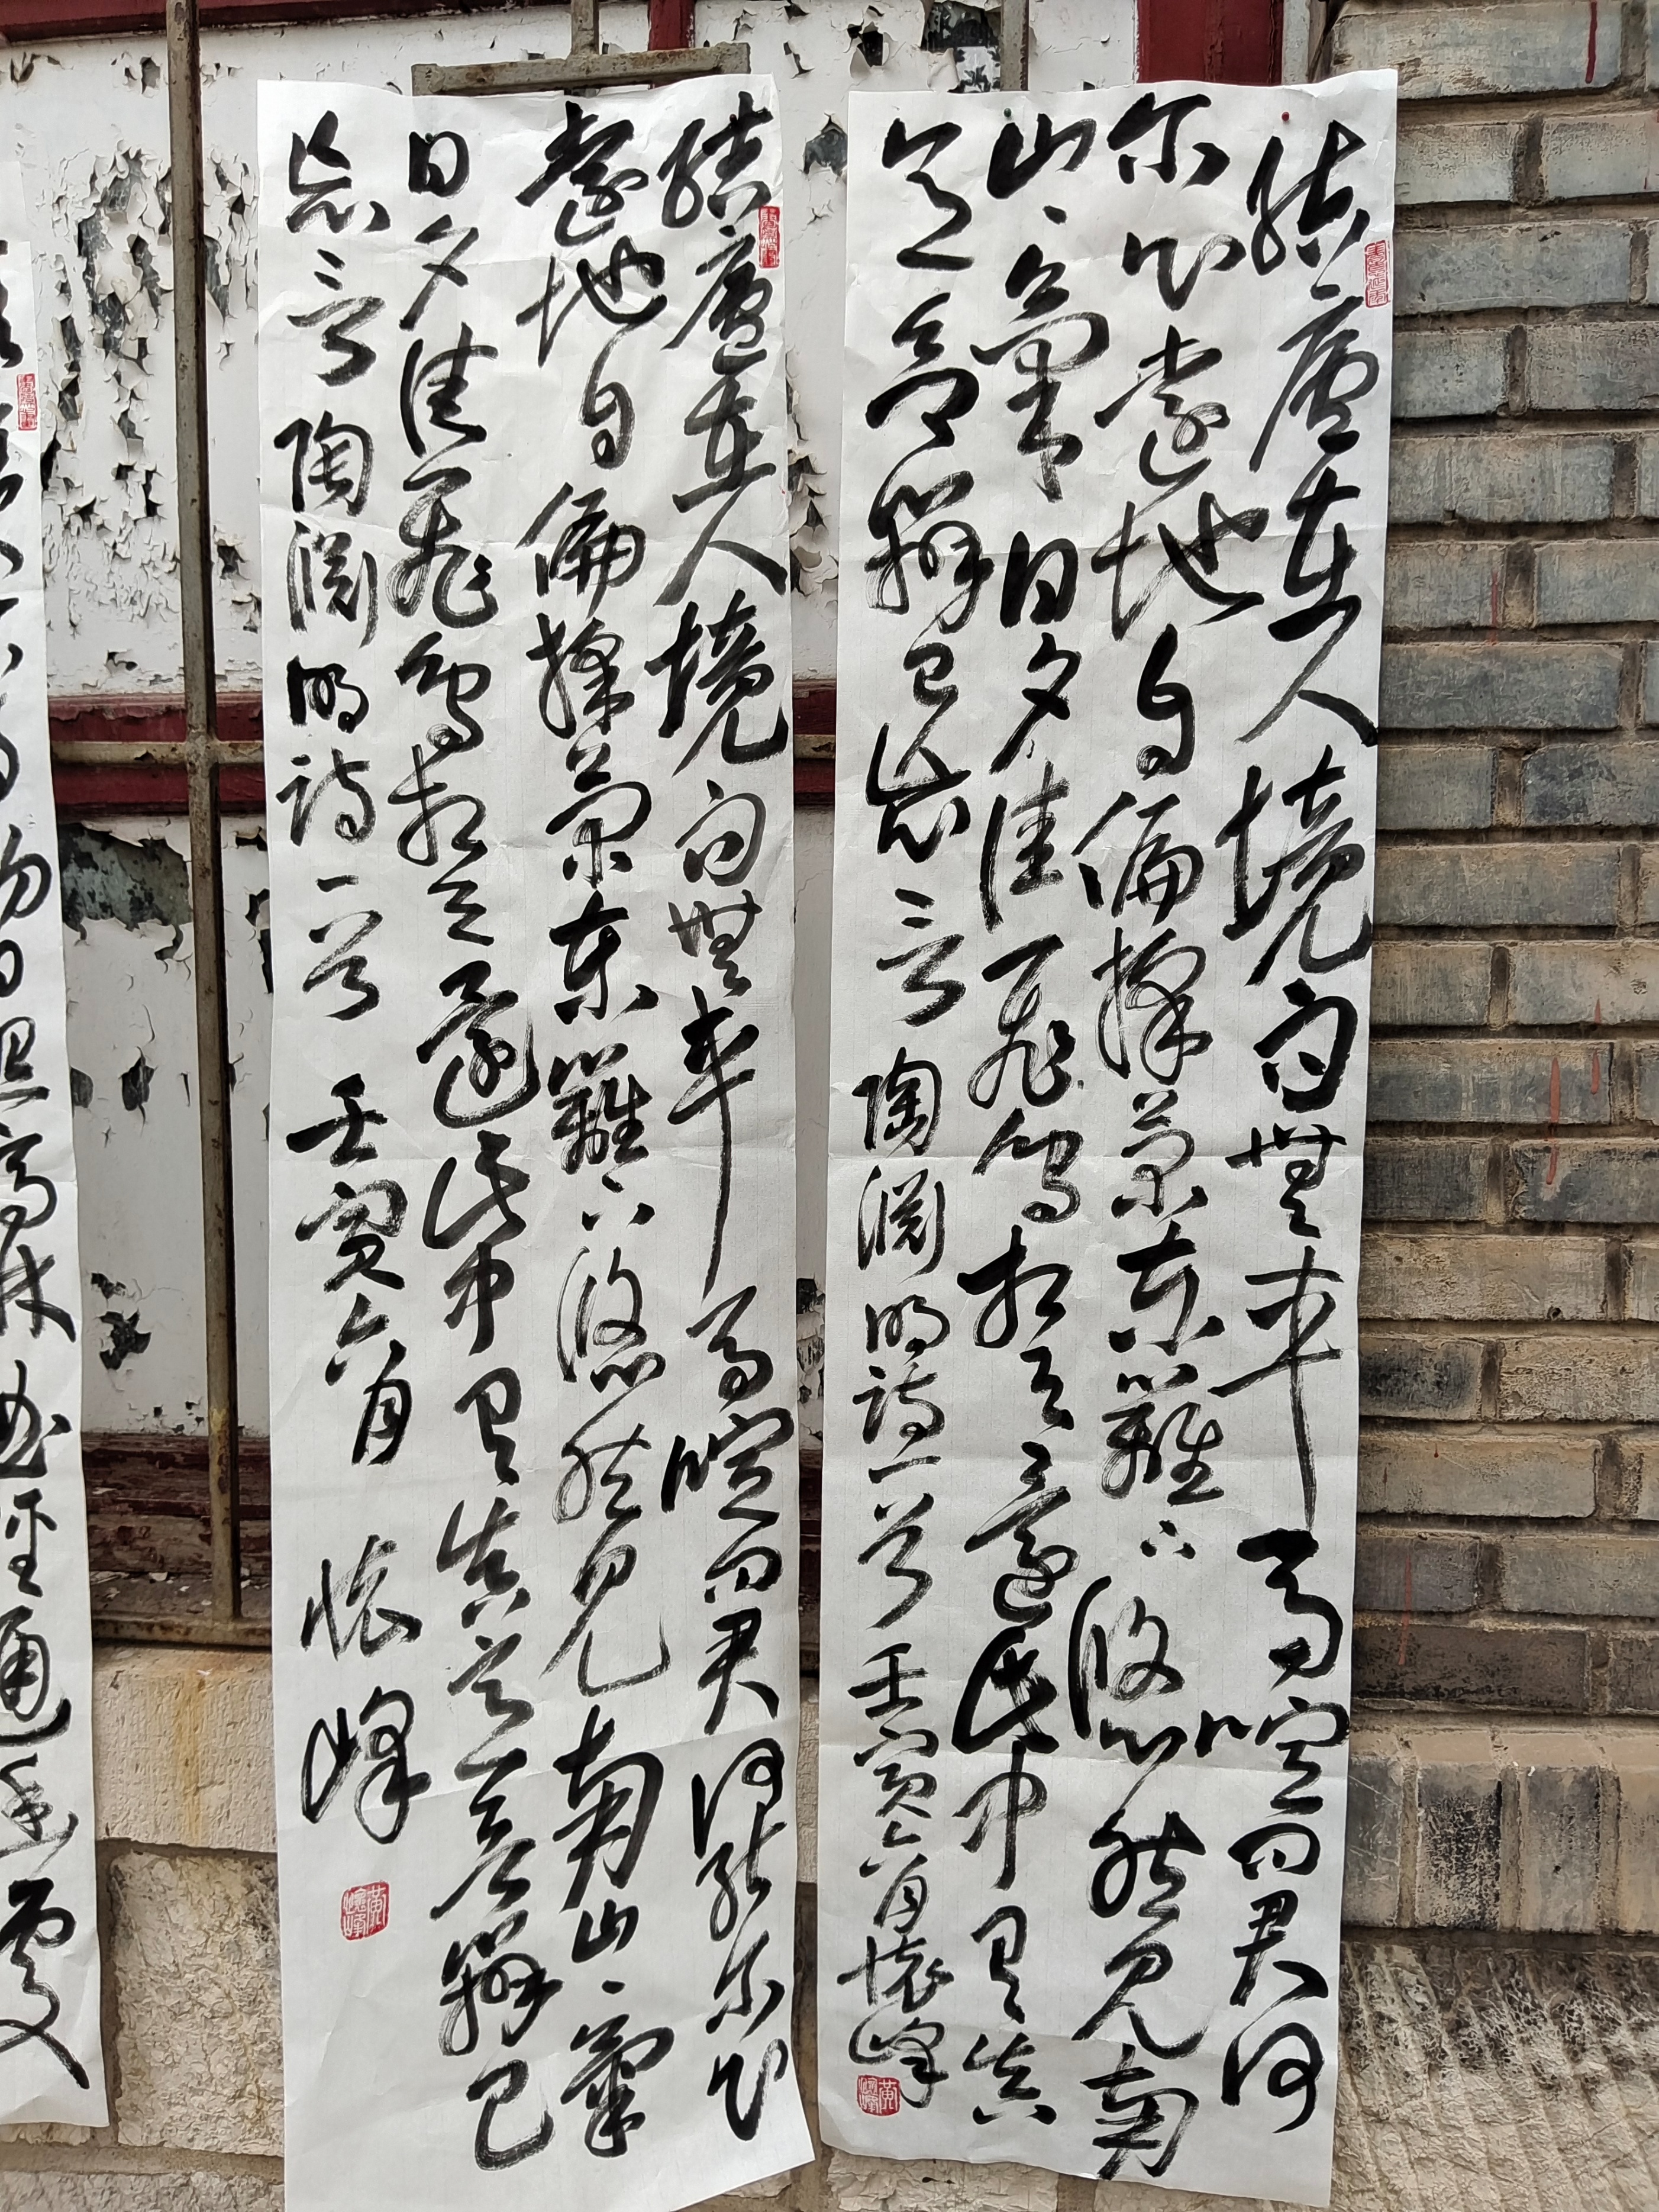 結廬在人境而無車馬喧問君何
尔心遠地自偏採菊東籬下悠然見南
山、氣日夕佳飛鳥相与還此中有真
意欲辨已忘言 陶渊明詩一首 壬寅六月 懷峰
結廬在人境而無車馬喧問君何能尔心
遠地自偏採菊東籬下悠然見南山、氣
日夕佳飛鳥相与還此中有真意欲辨已
忘言 陶渊明詩一首 壬寅六月 懷峰
初日照高林曲徑通幽處